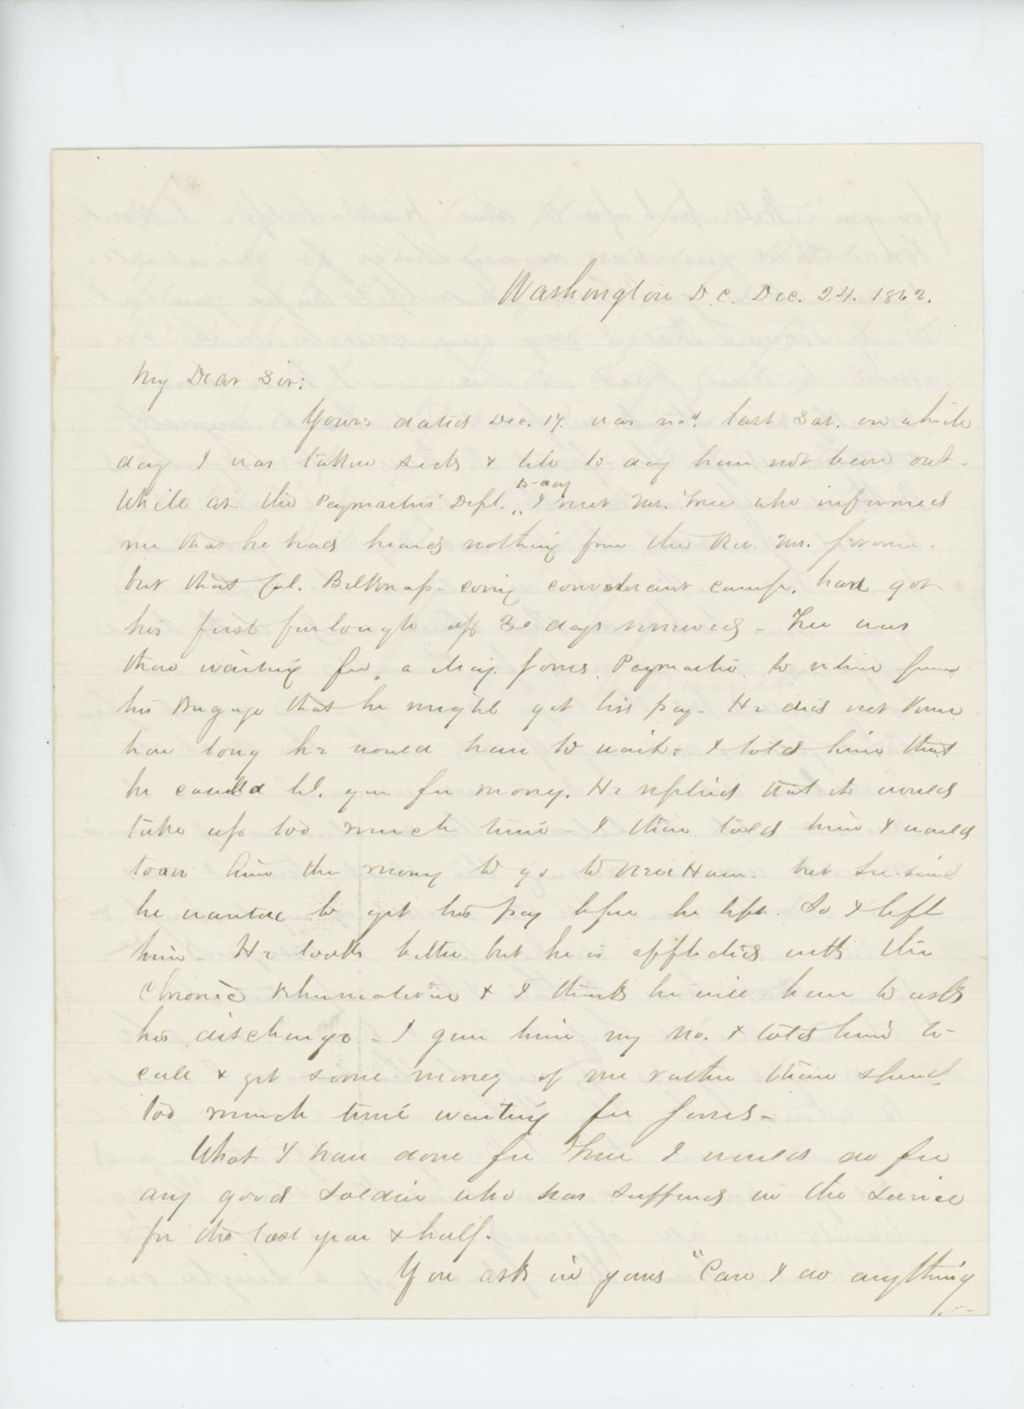 Washington D.C. Dec. 24. 1862.
My Dear Sir:
Yours dated Dec. 17. was rec'd last Sat. on which
day I was taken sick & till to day have not been out.
While at the Paymasters' Dept. to-day I met Mr. who informed
me that he had heard nothing from the Rev. Mr. Jerome.
but that Col. Belknap. convalescent camp. had got
his first furlough of 30 days renewed - was
there waiting for a Maj. Jones, Paymaster, to return from
his that he might get his pay - He did not know
how long he would have to wait. I told him that
he could tel. you for money. He replied that it would
take up too much time - I then told him I would
loan him the money to go to New Haven but he said
he wanted to get his pay before he left. So I left
him - He looks better but he is afflicted with the
Chronic Rhumatism & I think he will have to ask
his discharge - I gave him my No. & told him to
call & get some money of me rather than spend
too much time waiting for Jones -
What I have done for I would do for
any good soldier who has suffered in the service
for the last year & half.
You ask in yours "Can I do anything